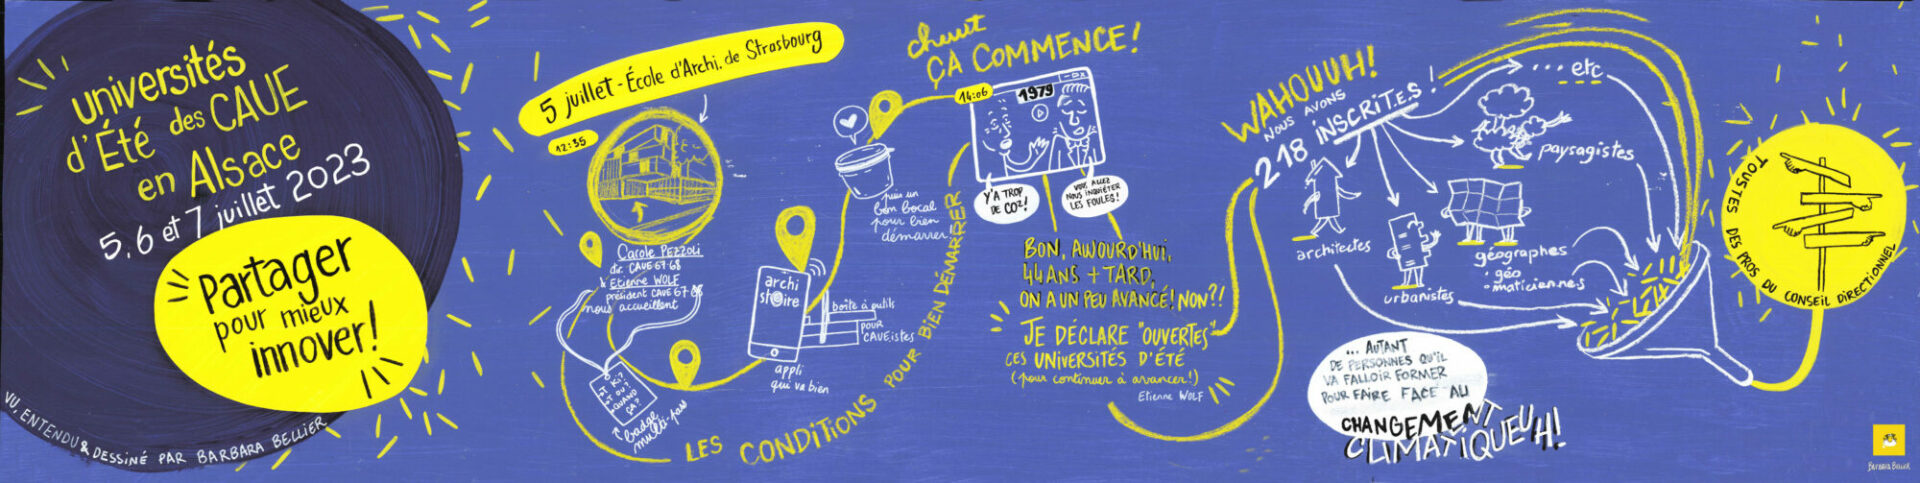 universités
d'Été des CAUE
en Alsace
5, 6 et 7 juillet 2023
Partager
pour mieux
innover!
VU, ENTENDU & DESSINÉ PAR BARBARA BELLIER
5 juillet - École d'Archi. de Strasbourg
12:35
Carole PEZZOLI
dir. CAUE 67-68
& Etienne WOLF
président CAUE 67-68
nous accueillent
Ki?
où?
QUAND
ÇA?
badge
multi-pass
archi
stoire
appli
qui va bien
boîte à outils
POUR
CAUE.istes
puis un
bon bocal
pour bien
démarrer
LES CONDITIONS POUR BIEN DÉMARRER
chuuut
ÇA COMMENCE!
14:06
1979
Y'A TROP
DE CO2!
VOUS ALLEZ
NOUS INQUIÉTER
LES FOULES!
BON, AUJOURD'HUI,
44 ANS + TARD,
ON A UN PEU AVANCÉ! NON?!
JE DÉCLARE "OUVERTES"
CES UNIVERSITÉS D'ÉTÉ
(pour continuer à avancer!)
Etienne WOLF
WAHOUUH!
NOUS AVONS
218 INSCRIT.E.S!
... etc
paysagistes
architectes
géographes
· géo
maticien.ne.s
urbanistes
... AUTANT
DE PERSONNES QU'IL
VA FALLOIR FORMER
POUR FAIRE FACE AU
CHANGEMENT
CLIMATIQUEUH!
TOUSTES DES PROS DU CONSEIL DIRECTIONNEL
Barbara Bellier